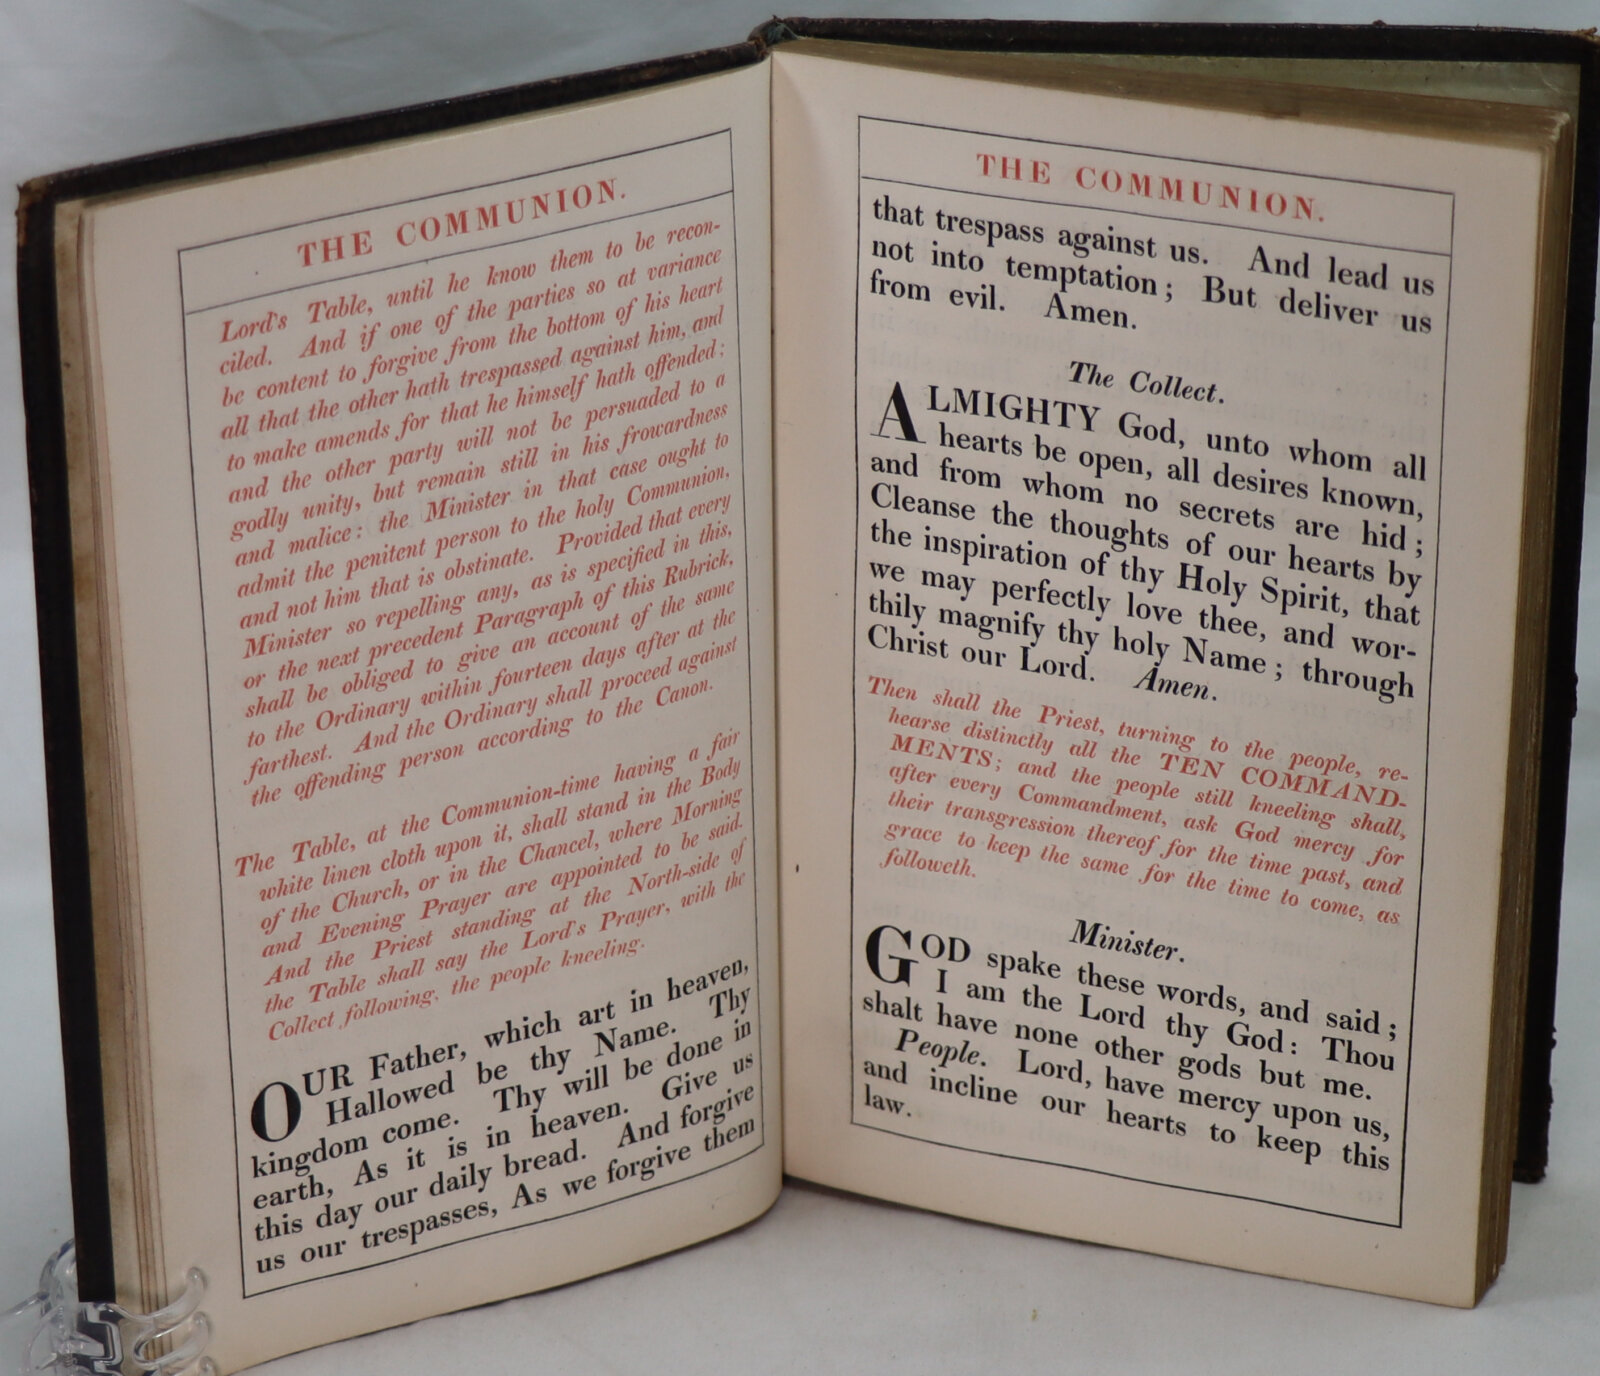 THE COMMUNION.
Lord's Table, until he know them to be recon-
ciled. And if one of the parties so at variance
be content to forgive from the bottom of his heart
all that the other hath trespassed against him, and
to make amends for that he himself hath offended;
and the other party will not be persuaded to a
godly unity, but remain still in his frowardness
and malice: the Minister in that case ought to
admit the penitent person to the holy Communion,
and not him that is obstinate. Provided that every
Minister so repelling any, as is specified in this,
or the next precedent Paragraph of this Rubrick,
shall be obliged to give an account of the same
to the Ordinary within fourteen days after at the
farthest. And the Ordinary shall proceed against
the offending person according to the Canon.
The Table, at the Communion-time having a fair
white linen cloth upon it, shall stand in the Body
of the Church, or in the Chancel, where Morning
and Evening Prayer are appointed to be said.
And the Priest standing at the North-side of
the Table shall say the Lord's Prayer, with the
Collect following, the people kneeling.
OUR Father, which art in heaven,
Hallowed be thy Name. Thy
kingdom come. Thy will be done in
earth, As it is in heaven. Give us
this day our daily bread. And forgive
us our trespasses, As we forgive them
THE COMMUNION.
that trespass against us. And lead us
not into temptation; But deliver us
from evil. Amen.
The Collect.
ALMIGHTY God, unto whom all
hearts be open, all desires known,
and from whom no secrets are hid;
Cleanse the thoughts of our hearts by
the inspiration of thy Holy Spirit, that
we may perfectly love thee, and wor-
thily magnify thy holy Name; through
Christ our Lord. Amen.
Then shall the Priest, turning to the people, re-
hearse distinctly all the TEN COMMAND-
MENTS; and the people still kneeling shall,
after every Commandment, ask God mercy for
their transgression thereof for the time past, and
grace to keep the same for the time to come, as
followeth.
Minister.
GOD spake these words, and said;
I am the Lord thy God: Thou
shalt have none other gods but me.
People. Lord, have mercy upon us,
and incline our hearts to keep this
law.